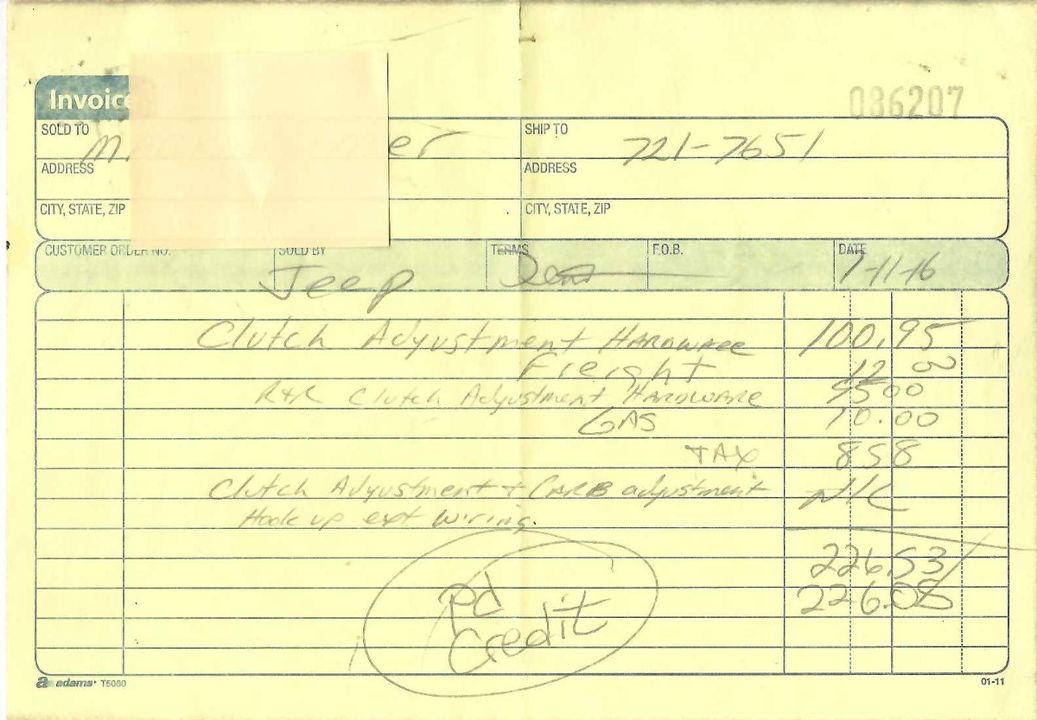 Invoice
036207
SOLD TO
SHIP TO
721-7651
ADDRESS
ADDRESS
CITY, STATE, ZIP
CITY, STATE, ZIP
CUSTOMER ORDER NO.
SOLD BY
TERMS
F.O.B.
DATE
Jeep
7-11-16
Clutch Adyustment Hardware 100.95
Freight 12 00
R+R Clutch Adyustment Hardware 9500
GAS 10.00
TAX 858
Clutch Adyustment + CARB adyustment N/C
Hook up ext wiring.
226.53
226.08
pd
Credit
a adams T5080
01-11